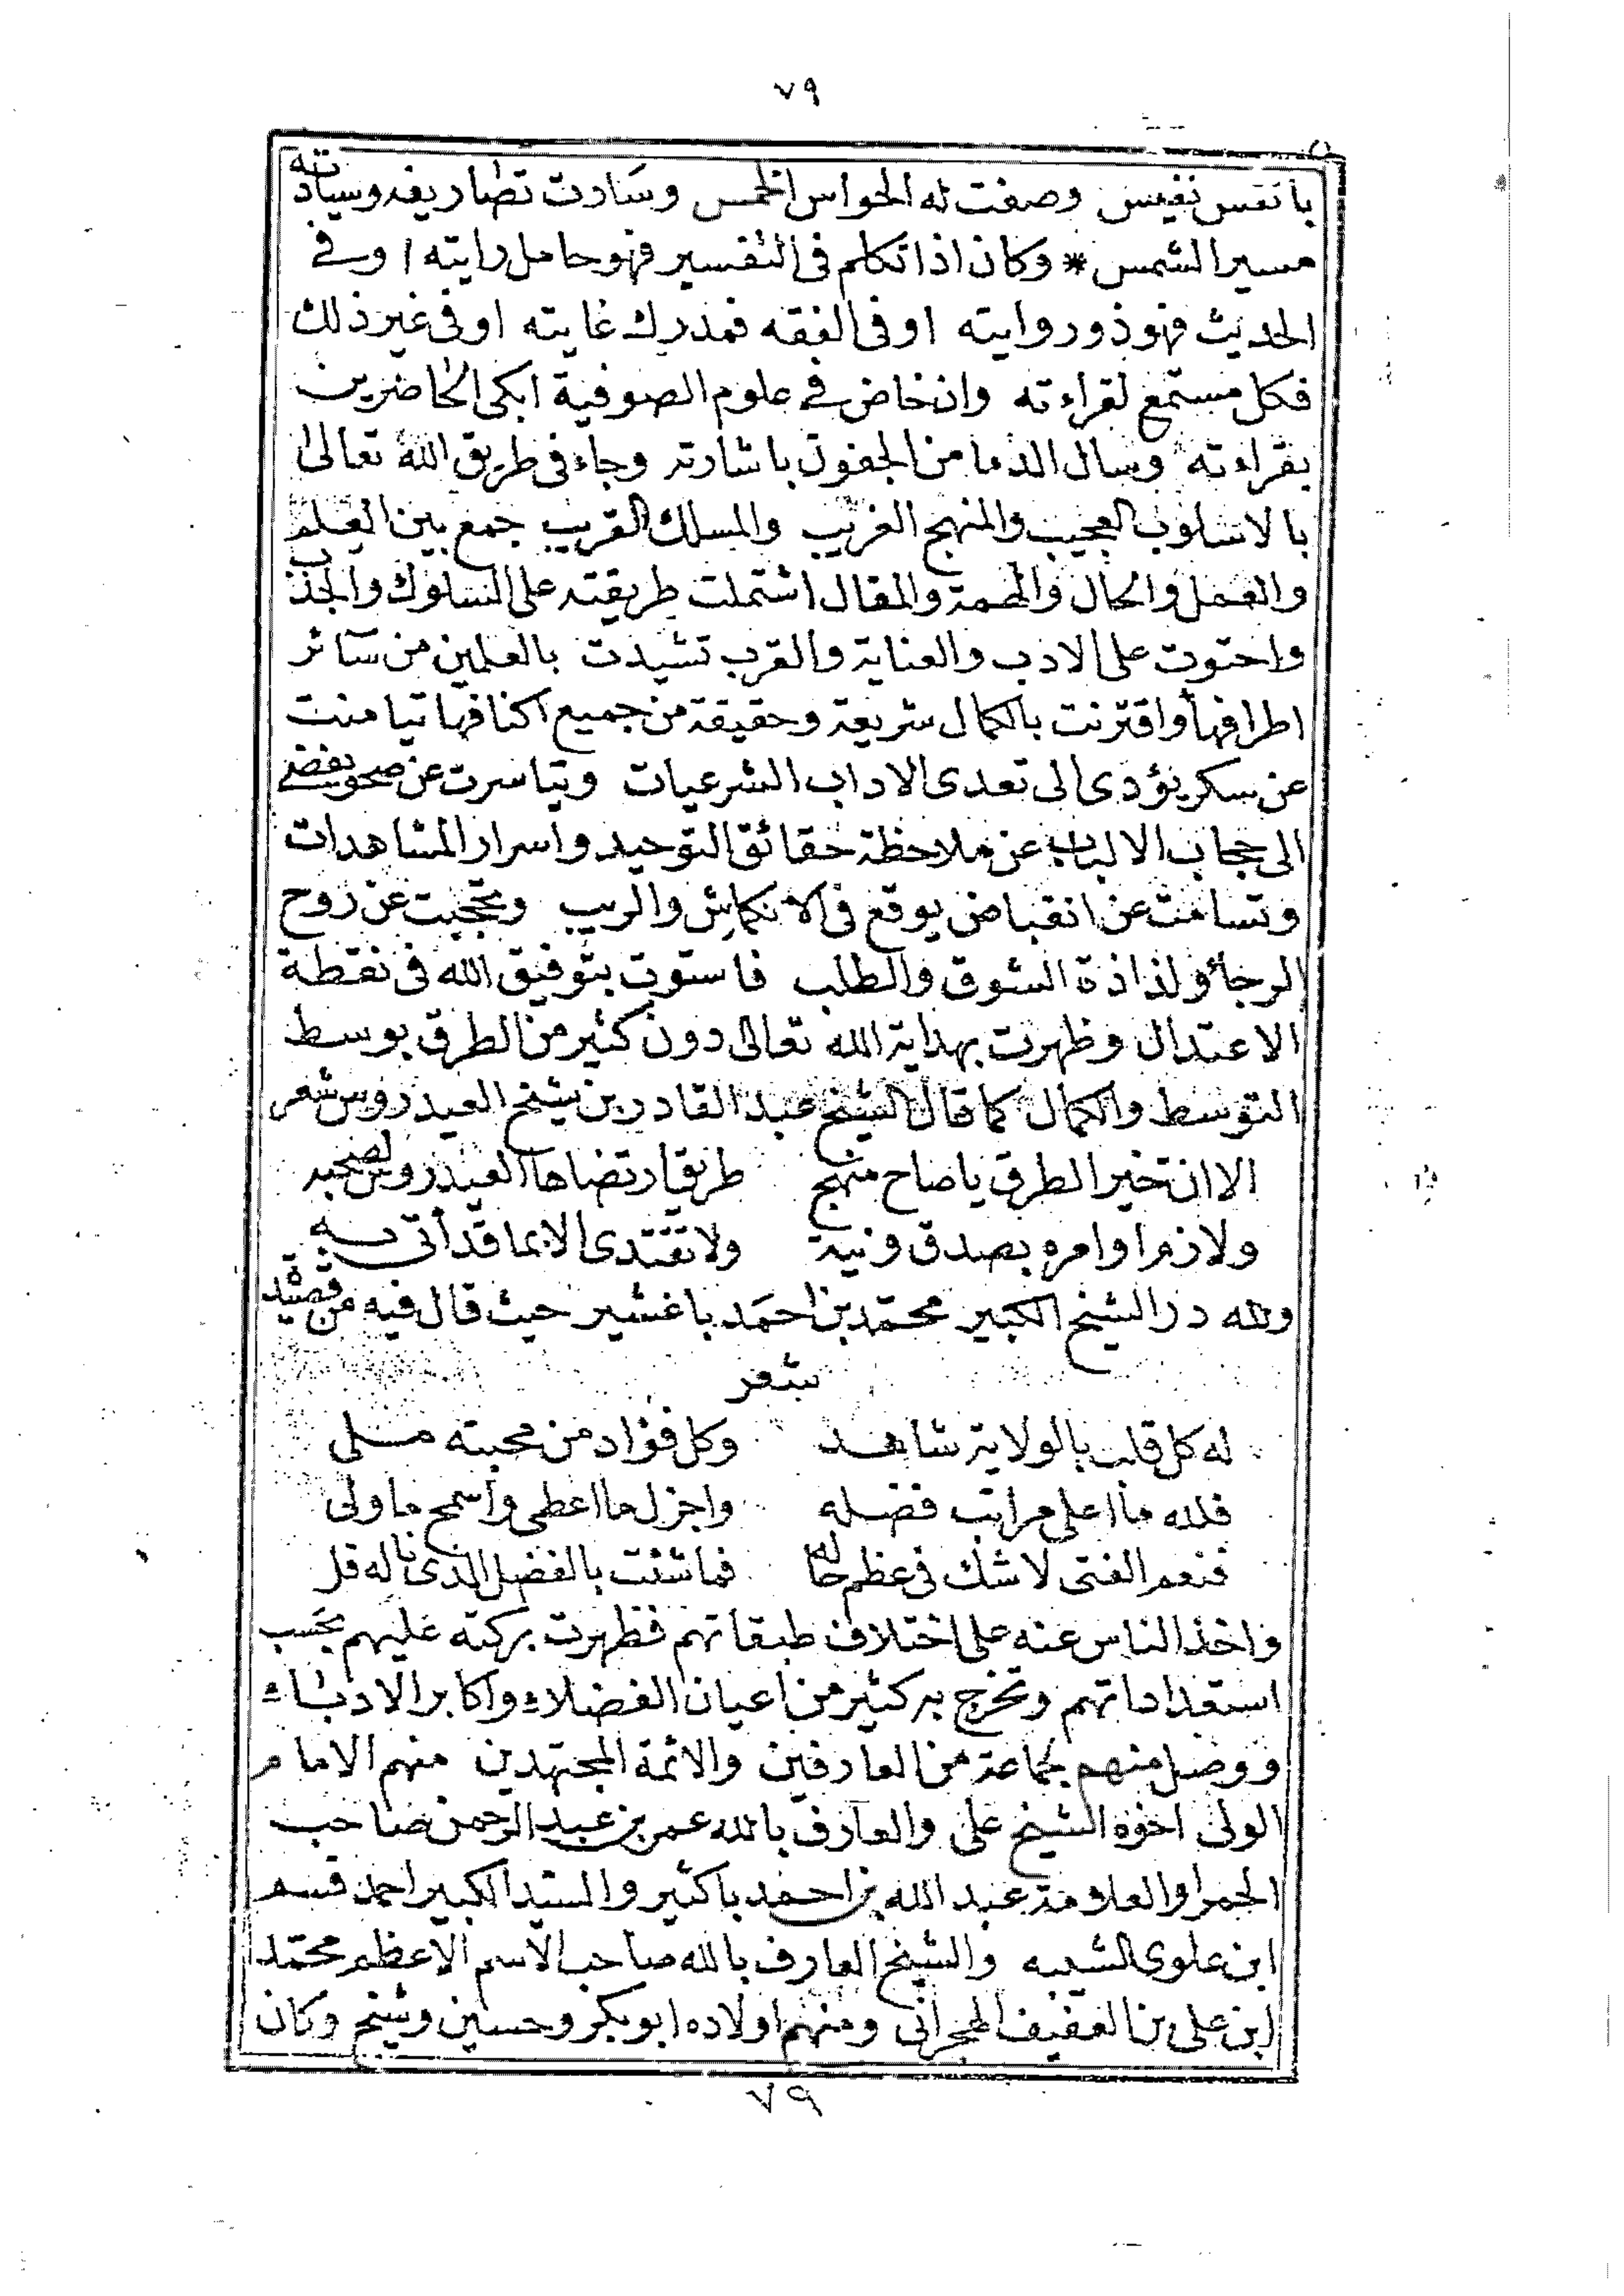 ٧٩
بانفس نفيس وصفت له الحواس الخمس وسادت تصاريفه وسياداته
مسير الشمس * وكان اذا تكلم فى التفسير فهو حامل رايته او فى
الحديث فهو ذو روايته او فى الفقه فمدرك غايته او فى غير ذلك
فكل مستمع لقراءته وان خاض فى علوم الصوفية ابكى الحاضرين
بقراءته وسال الدما من الجفون باشارته وجاء فى طريق الله تعالى
بالاسلوب العجيب والمنهج الغريب والمسلك القريب جمع بين العلم
والعمل والحال والهمة والمقال اشتملت طريقته على السلوك والجذب
واحتوت على الادب والعناية والقرب تشيدت بالعلمين من سآئر
اطرافها واقترنت بالكمال شريعة وحقيقة من جميع اكنافها تيامنت
عن سكر يؤدى الى تعدى الاداب الشرعيات وتياسرت عن صحو يفضى
الى حجاب الالباب عن ملاحظة حقائق التوحيد واسرار المشاهدات
وتسامت عن انقباض يوقع فى الانكماش والريب وتحجبت عن روح
الرجاء ولذاذة الشوق والطلب فاستوت بتوفيق الله فى نقطة
الاعتدال وظهرت بهداية الله تعالى دون كثير من الطرق بوسط
التوسط والكمال كما قال الشيخ عبد القادر بن شيخ العيدروس شعر
الا ان خير الطرق ياصاح منهج طريق ارتضاها العيدروس لصحبه
ولازم اوامره بصدق ونية ولا تقتدى الا بما قد أتى به
ولله در الشيخ الكبير محمد بن احمد باغشير حيث قال فيه من قصيدة
شعر
له كل قلب بالولاية شاهد وكل فؤاد من محبته مملى
فلله ما اعلى مراتب فضله واجزل ما اعطى واسمح ما ولى
فنعم الفتى لا شك فى عظم حاله فما شئت بالفضل الذى ناله قل
واخذ الناس عنه على اختلاف طبقاتهم فظهرت بركته عليهم بحسب
استعداداتهم وتخرج به كثير من اعيان الفضلاء واكابر الادباء
ووصل منهم جماعة من العارفين والائمة المجتهدين منهم الامام
الولى اخوه الشيخ على والعارف بالله عمر بن عبد الرحمن صاحب
الحمرا والعلامة عبد الله بن احمد باكثير والسيد الكبير احمد قسم
ابن علوى الشيبه والشيخ العارف بالله صاحب الاسم الاعظم محمد
ابن على بن العفيف الهجرانى ومنهم اولاده ابوبكر وحسين وشيخ وكان
٧٩